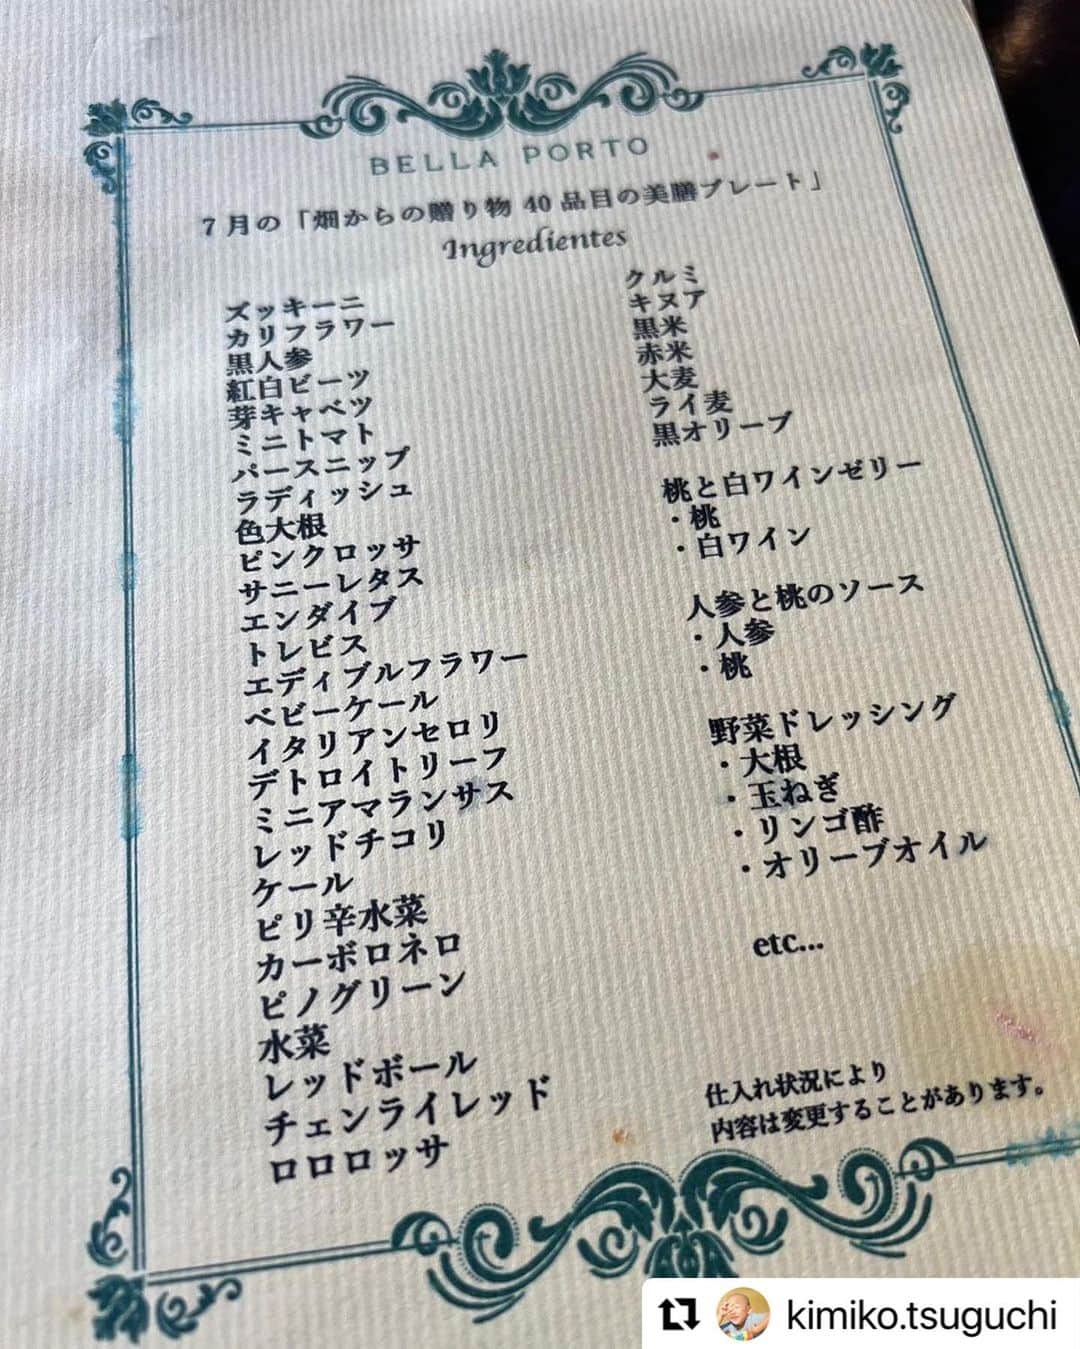 BELLA PORTO
7月の「畑からの贈り物 40 品目の美膳プレート」
Ingredientes
ズッキーニ
カリフラワー
黒人参
紅白ビーツ
芽キャベツ
ミニトマト
パースニップ
ラディッシュ
色大根
ピンクロッサ
サニーレタス
エンダイブ
トレビス
エディブルフラワー
ベビーケール
イタリアンセロリ
デトロイトリーフ
ミニアマランサス
レッドチコリ
ケール
ピリ辛水菜
カーボロネロ
ピノグリーン
水菜
レッドボール
チェンライレッド
ロロロッサ
クルミ
キヌア
黒米
赤米
大麦
ライ麦
黒オリーブ
桃と白ワインゼリー
・桃
・白ワイン
人参と桃のソース
・人参
・桃
野菜ドレッシング
・大根
・玉ねぎ
・リンゴ酢
・オリーブオイル
etc...
仕入れ状況により
内容は変更することがあります。
kimiko.tsuguchi